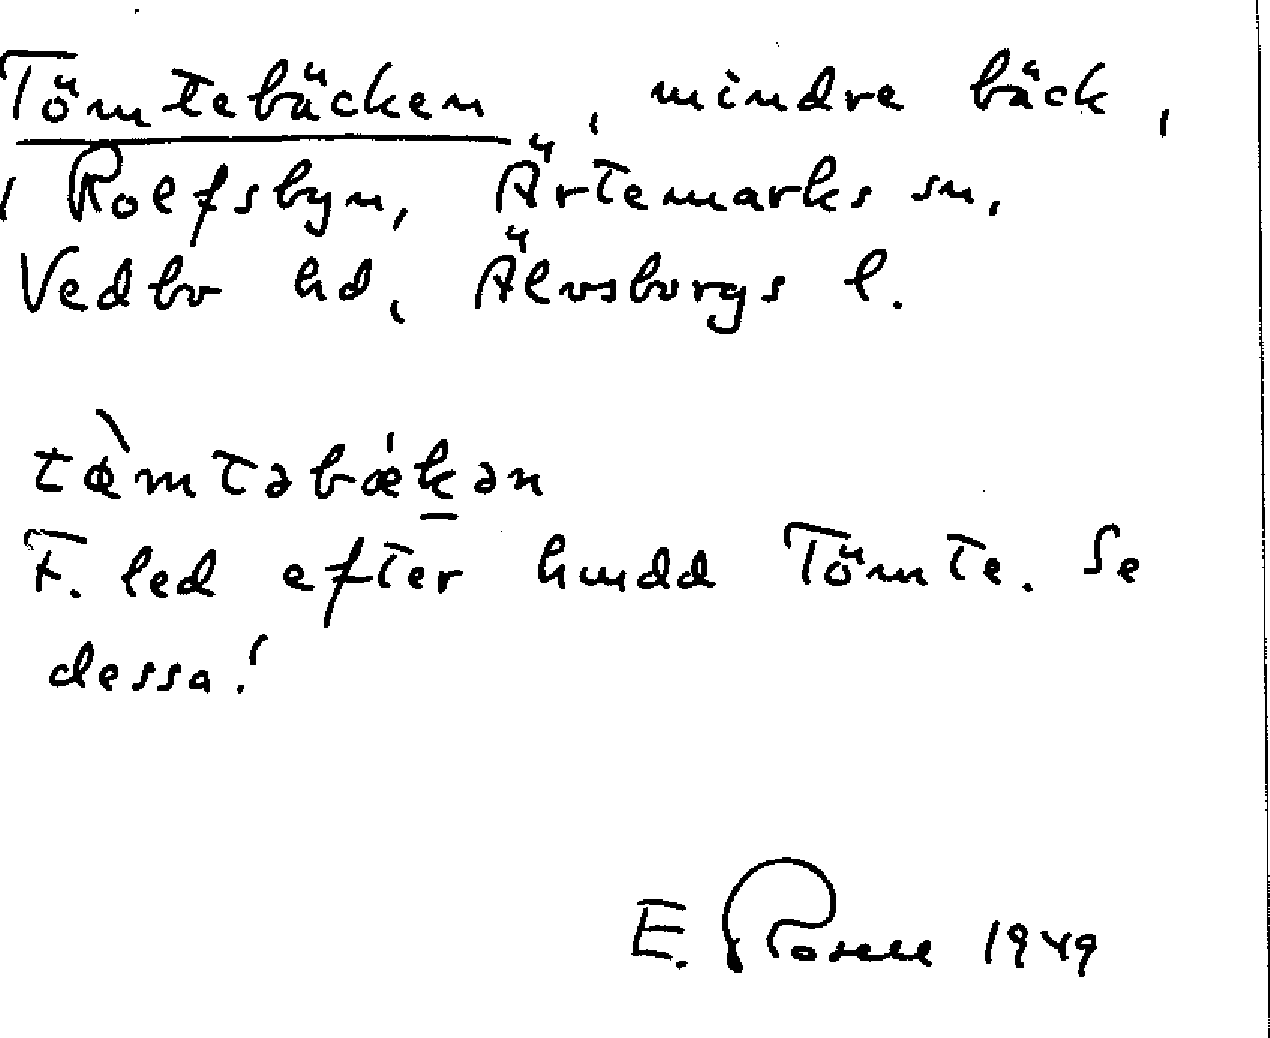 Tömtebäcken, mindre bäck,
i Rolfsbyn, Ärtemarks sn,
Vedbo hd, Älvsborgs l.
tø̀mtəbǽkən
F. led efter hmdd Tömte. Se
dessa!
E. 1949